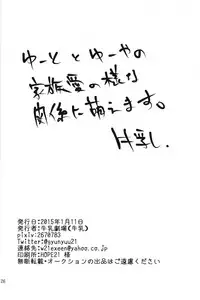 ゆーととゆーやの
家族愛の様な
関係に萌えます。
牛乳。
発行日:2015年1月11日
発行者:牛乳劇場(牛乳)
pixiv:2670783
Twitter:@gyunyuu21
連絡先:w21exeen@yahoo.co.jp
印刷所:HOPE21 様
無断転載・オークションの出品はご遠慮ください
26